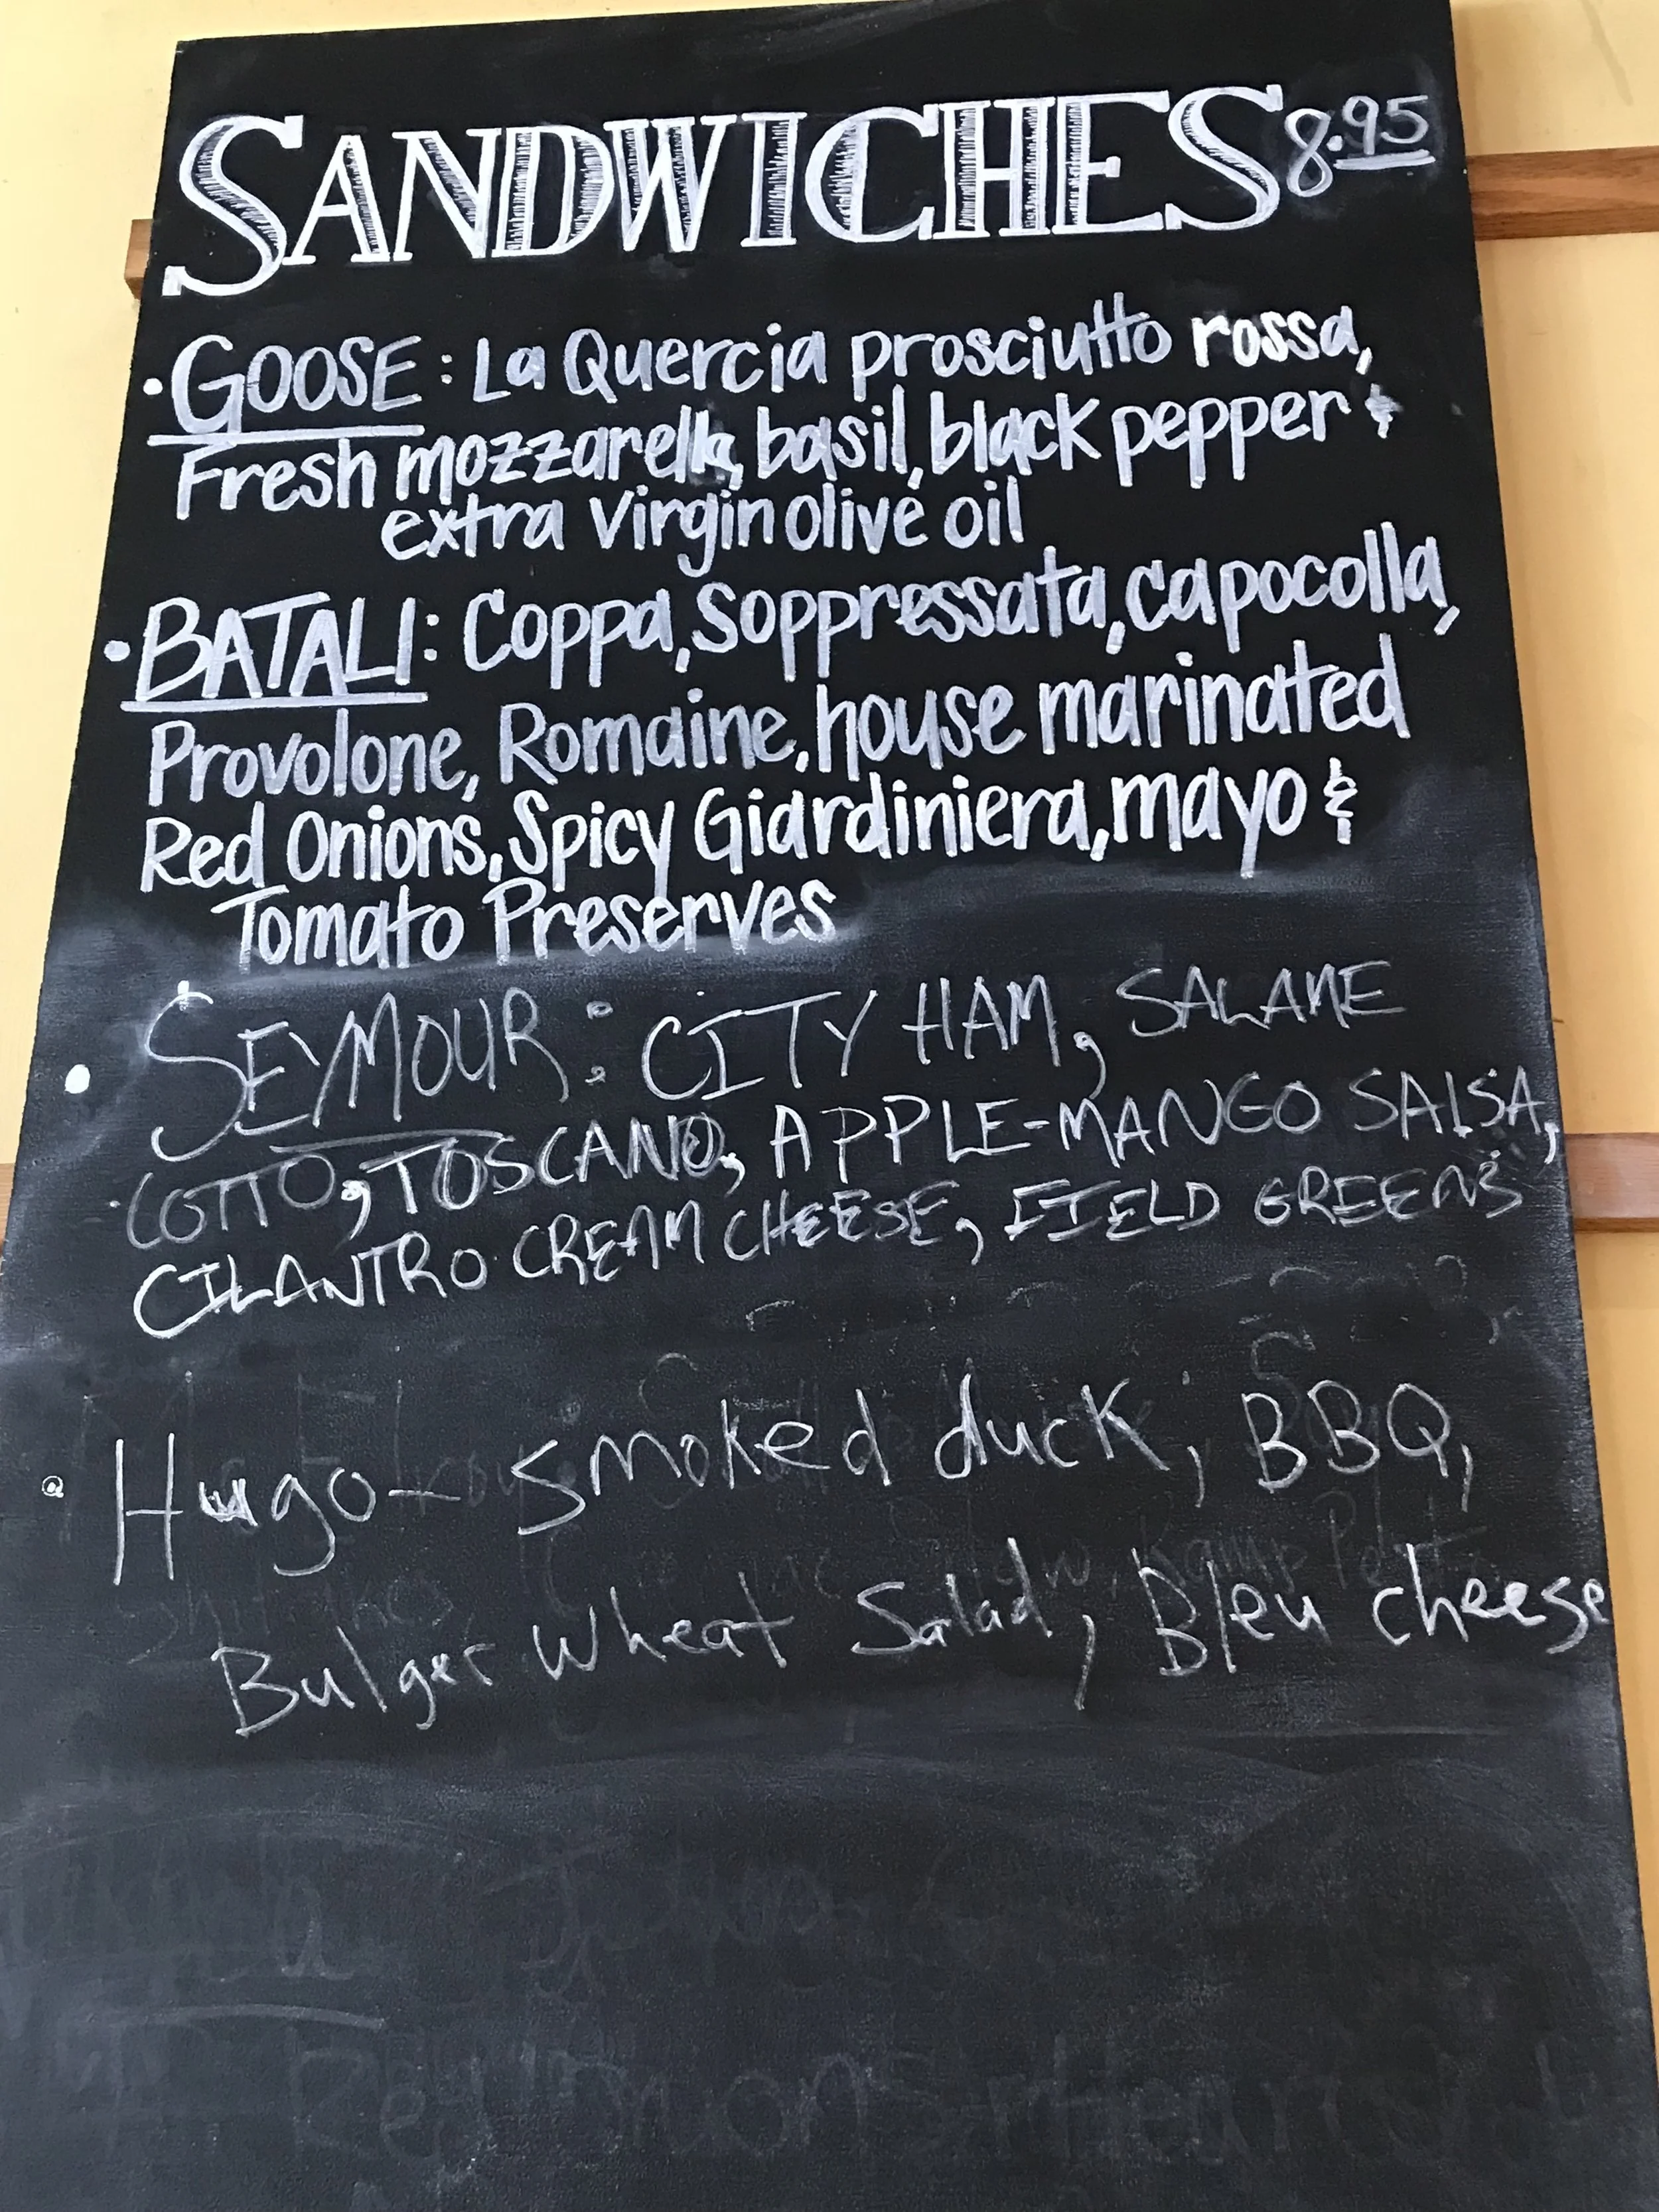 SANDWICHES 8.95
• GOOSE: La Quercia prosciutto rossa,
Fresh mozzarella, basil, black pepper &
extra virgin olive oil
• BATALI: Coppa, Soppressata, capocolla,
Provolone, Romaine, house marinated
Red Onions, Spicy Giardiniera, mayo &
Tomato Preserves
• SEYMOUR: CITY HAM, SALAME
COTTO, TOSCANO, APPLE-MANGO SALSA,
CILANTRO CREAM CHEESE, FIELD GREENS
• Hugo - smoked duck, BBQ,
Bulger wheat Salad, Bleu cheese